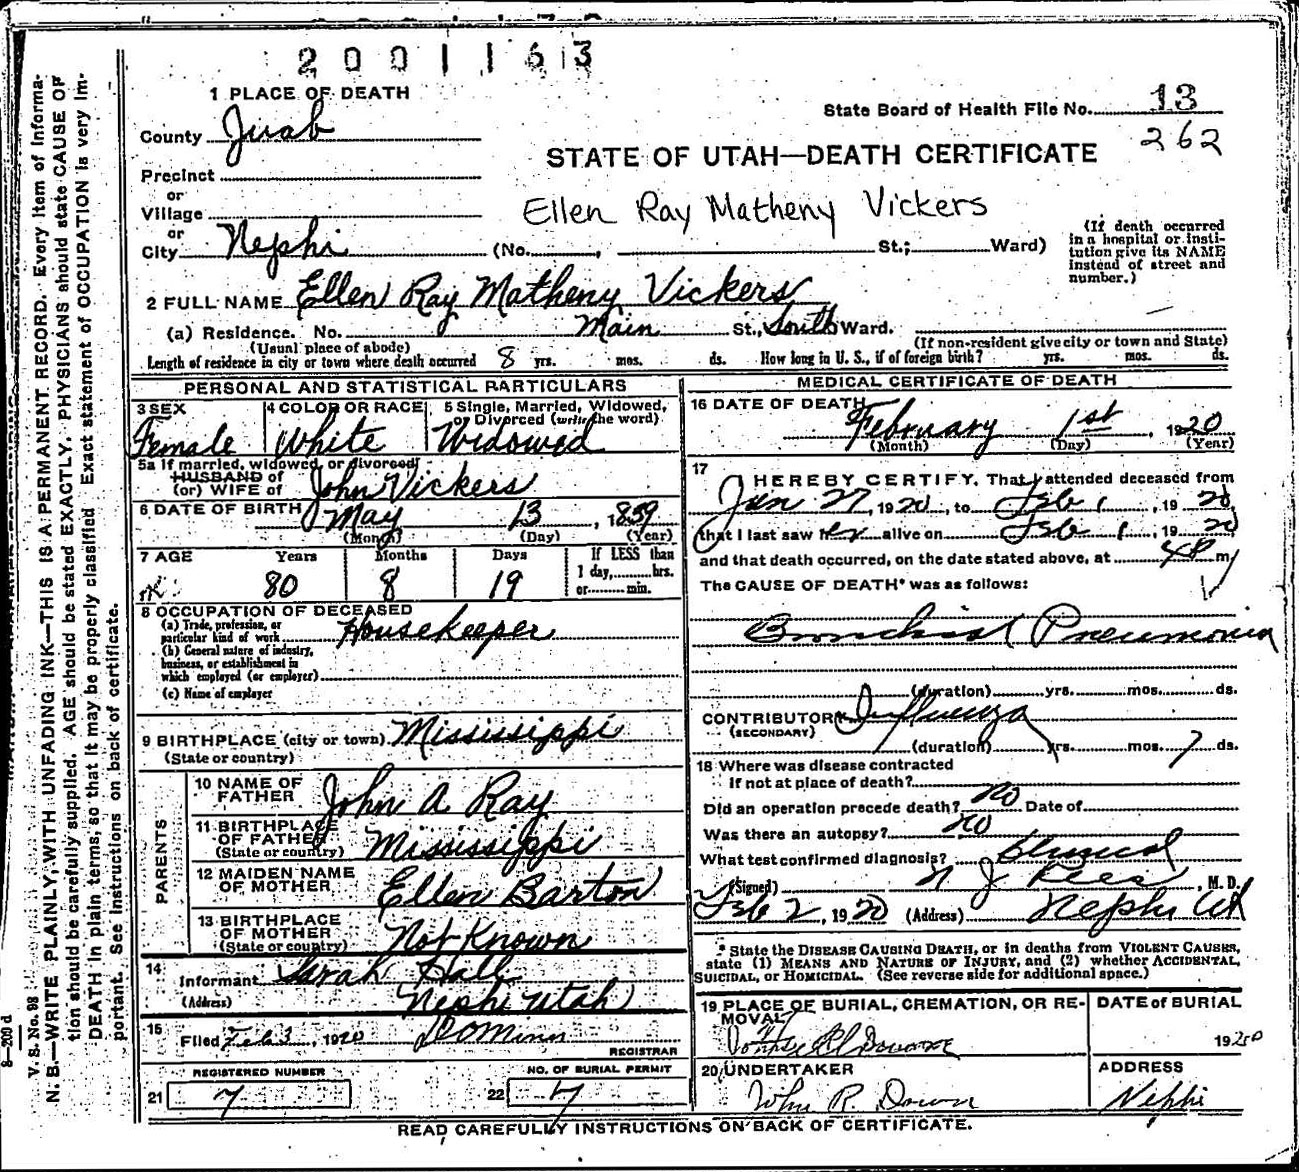 2001163
1 PLACE OF DEATH
State Board of Health File No. 13
262
County Juab
STATE OF UTAH—DEATH CERTIFICATE
Precinct
or
Village
Ellen Ray Matheny Vickers
or
City Nephi (No. , St.; Ward)
(If death occurred
in a hospital or insti-
tution give its NAME
instead of street and
number.)
2 FULL NAME Ellen Ray Matheny Vickers
(a) Residence. No. Main St., South Ward.
(Usual place of abode)
(If non-resident give city or town and State)
Length of residence in city or town where death occurred 8 yrs. mos. ds. How long in U. S., if of foreign birth? yrs. mos. ds.
PERSONAL AND STATISTICAL PARTICULARS
3 SEX
Female
4 COLOR OR RACE
White
5 Single, Married, Widowed,
or Divorced (write the word)
Widowed
5a If married, widowed, or divorced
HUSBAND of
(or) WIFE of John Vickers
6 DATE OF BIRTH May 13, 1839
(Month) (Day) (Year)
7 AGE Years Months Days
80 8 19
If LESS than
1 day, hrs.
or min.
8 OCCUPATION OF DECEASED
(a) Trade, profession, or
particular kind of work Housekeeper
(b) General nature of industry,
business, or establishment in
which employed (or employer)
(c) Name of employer
9 BIRTHPLACE (city or town) Mississippi
(State or country)
PARENTS
10 NAME OF
FATHER John A Ray
11 BIRTHPLACE
OF FATHER
(State or country) Mississippi
12 MAIDEN NAME
OF MOTHER Ellen Barton
13 BIRTHPLACE
OF MOTHER
(State or country) Not Known
14
Informant Sarah Hall
(Address) Nephi Utah
15
Filed Feb 3, 1920
REGISTRAR
REGISTERED NUMBER
21 7
NO. OF BURIAL PERMIT
22 7
MEDICAL CERTIFICATE OF DEATH
16 DATE OF DEATH
February 1st, 1920
(Month) (Day) (Year)
17
I HEREBY CERTIFY, That I attended deceased from
Jan 27, 1920, to Feb 1, 1920
that I last saw her alive on Feb 1, 1920
and that death occurred, on the date stated above, at 4 P m
The CAUSE OF DEATH* was as follows:
Bronchial Pneumonia
(duration) yrs. mos. ds.
CONTRIBUTORY Influenza
(SECONDARY)
(duration) yrs. mos. 7 ds.
18 Where was disease contracted
If not at place of death?
Did an operation precede death? no Date of
Was there an autopsy? no
What test confirmed diagnosis? clinical
(Signed) , M. D.
Feb 2, 1920 (Address) Nephi Ut
* State the DISEASE CAUSING DEATH, or in deaths from VIOLENT CAUSES,
state (1) MEANS AND NATURE OF INJURY, and (2) whether ACCIDENTAL,
SUICIDAL, or HOMICIDAL. (See reverse side for additional space.)
19 PLACE OF BURIAL, CREMATION, OR RE-
MOVAL
DATE of BURIAL
1920
20 UNDERTAKER
ADDRESS
Nephi
READ CAREFULLY INSTRUCTIONS ON BACK OF CERTIFICATE.
8—200 d
V. S. No. 98
N. B.—WRITE PLAINLY, WITH UNFADING INK—THIS IS A PERMANENT RECORD. Every item of informa-
tion should be carefully supplied. AGE should be stated EXACTLY. PHYSICIANS should state CAUSE OF
DEATH in plain terms, so that it may be properly classified. Exact statement of OCCUPATION is very im-
portant. See instructions on back of certificate.